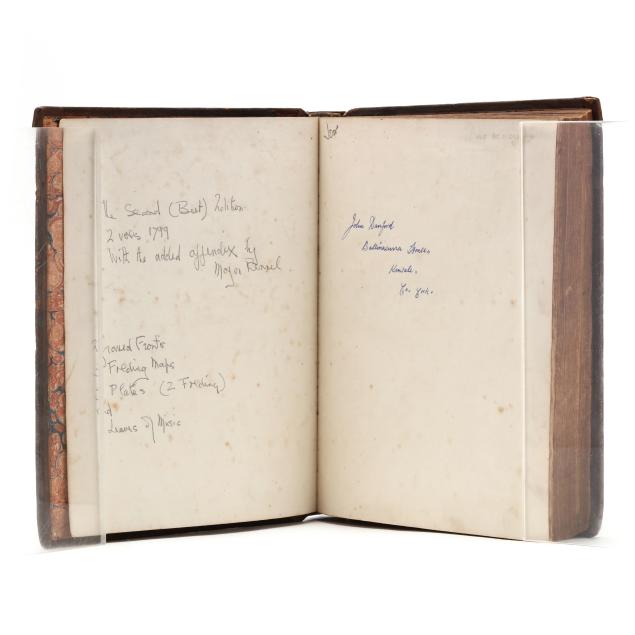 he Second (Best) Edition
2 vols 1799
With the added appendix by
Major Rennel
raved Fronts
Folding Maps
Plates (2 Folding)
Leaves of Music
John
Ballinacurra House,
Kinsale,
Co. Cork.